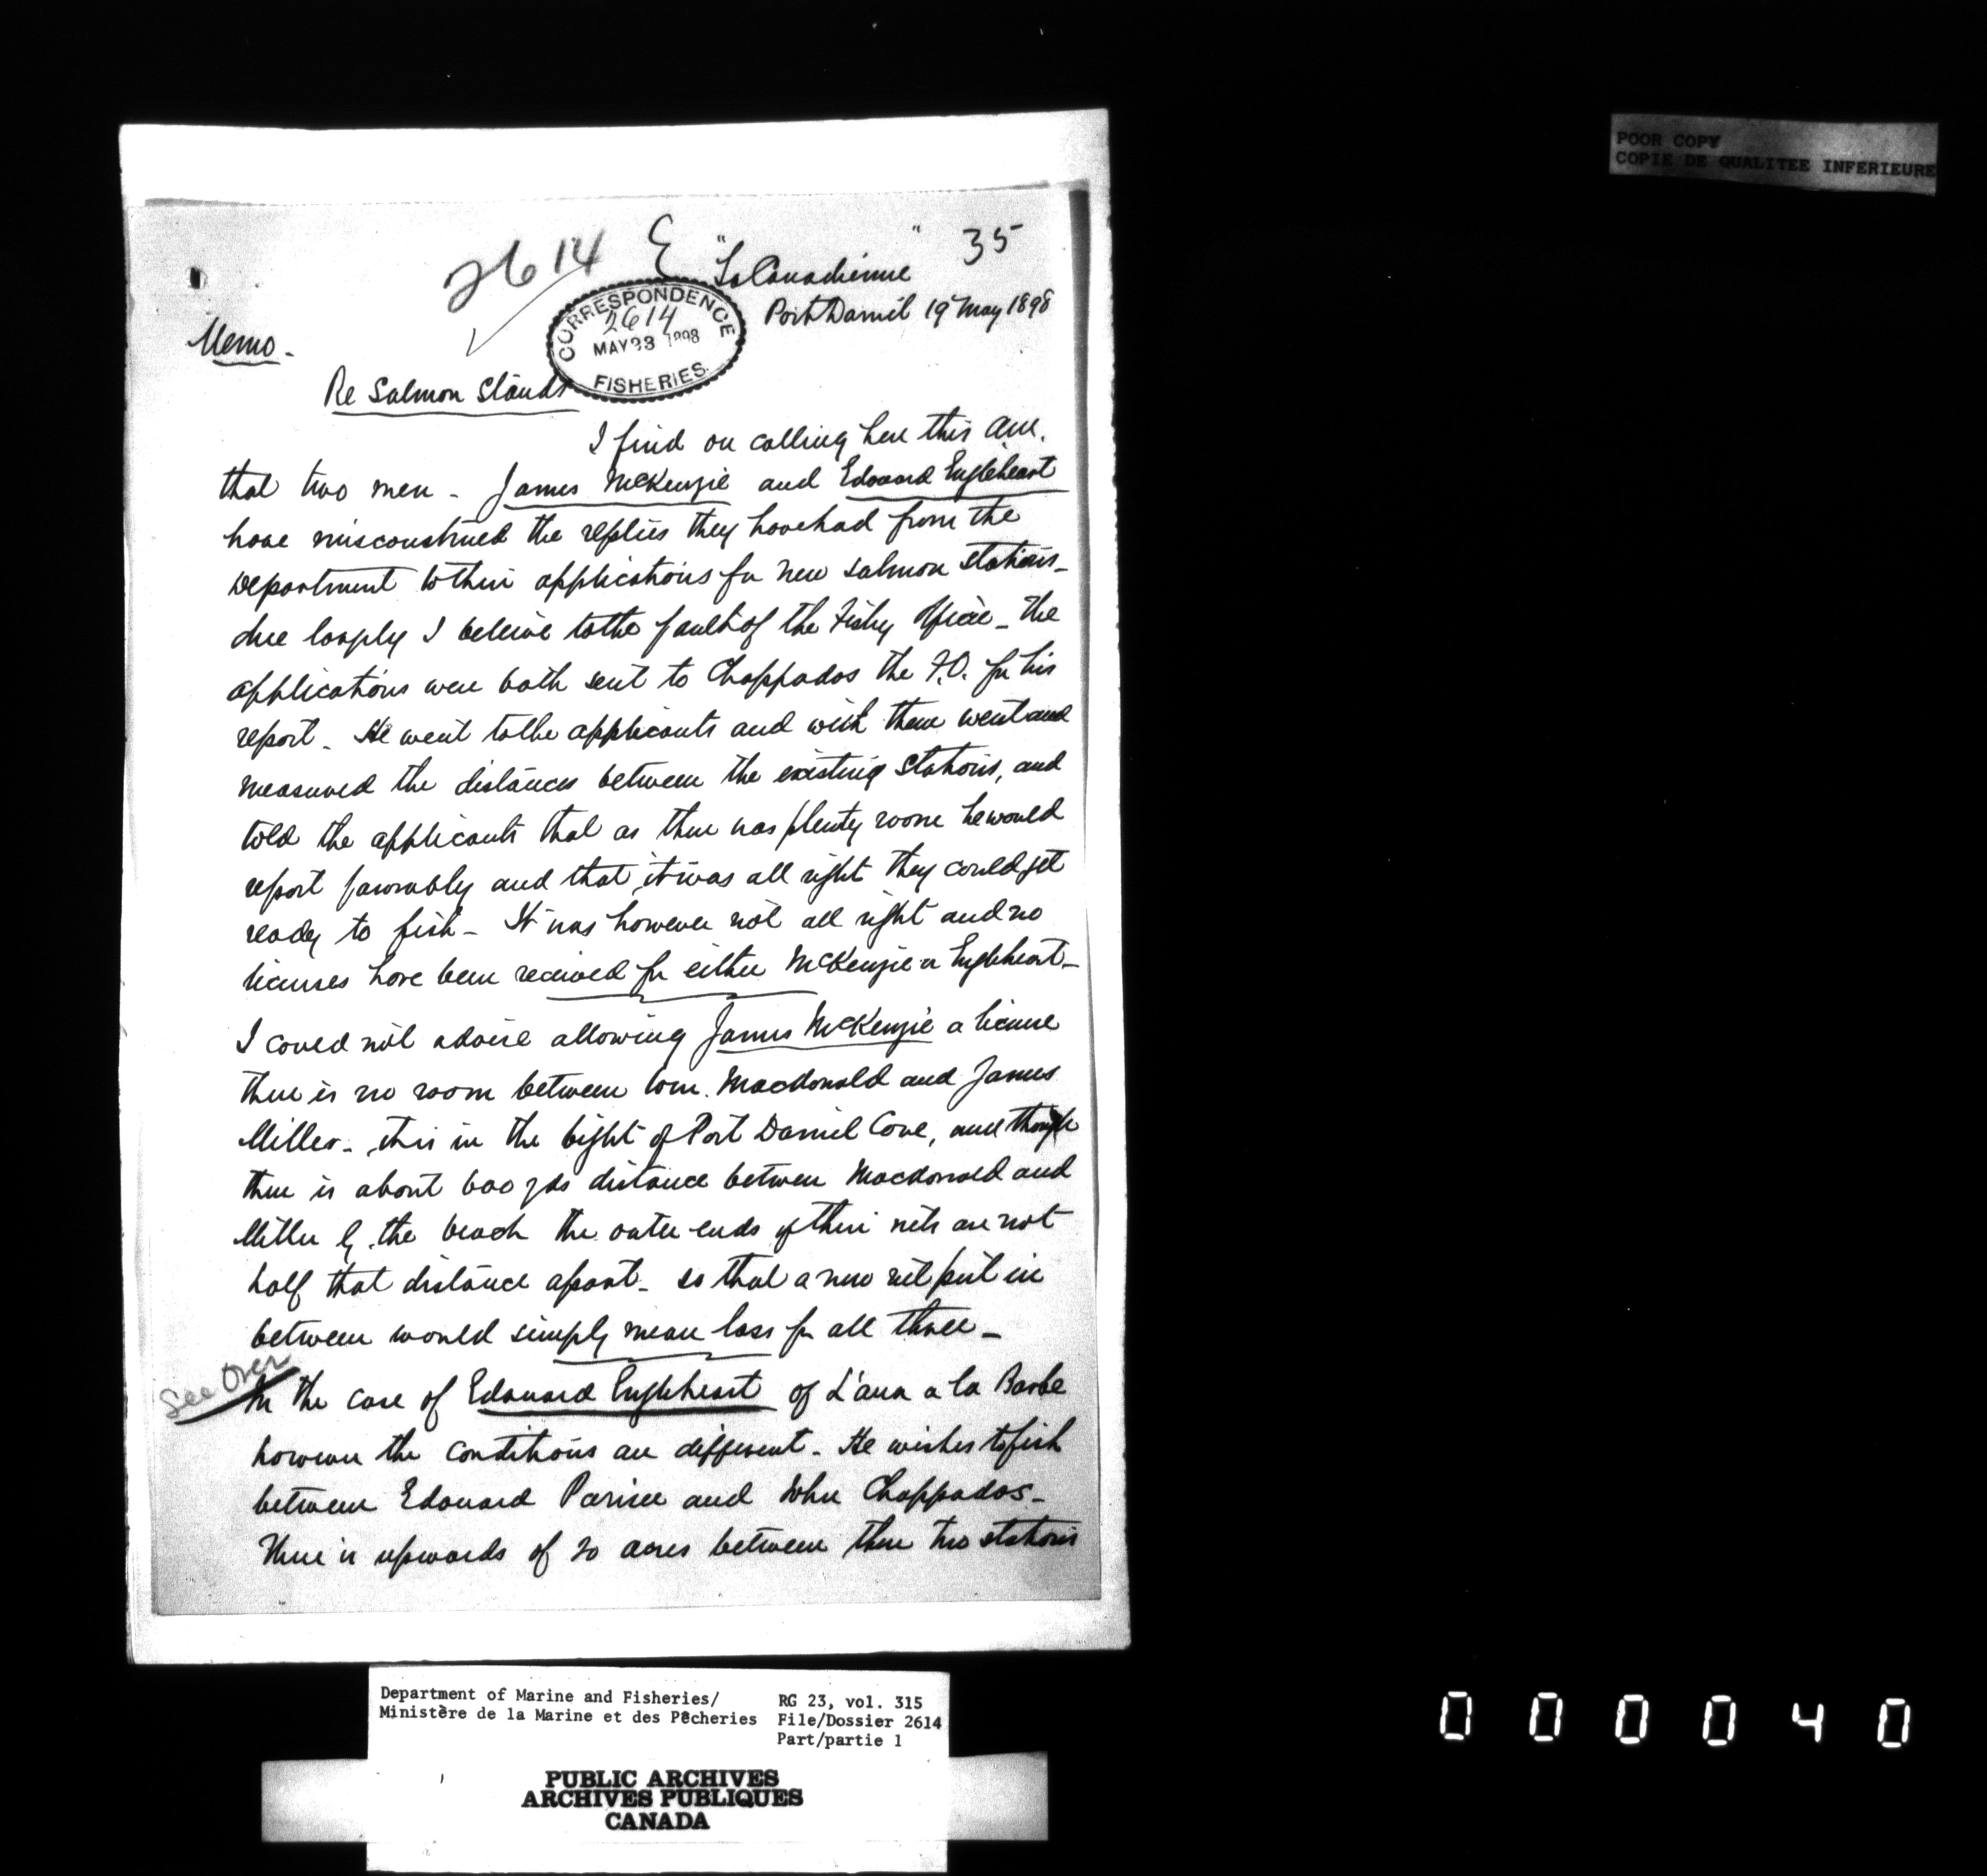 POOR COPY
COPIE DE QUALITEE INFERIEURE
2614 E "La Canadienne" 35
Port Daniel 19 May 1898
CORRESPONDENCE
2614
MAY 23 1898
FISHERIES
Memo.
Re Salmon Stands
I find on calling here this am.
that two men - James McKenzie and Edouard Engleheart
have misconstrued the replies they have had from the
Department to their applications for new salmon stations -
due largely I beleive to the fault of the Fishy Officer - The
applications were both sent to Chappados the F.O. for his
report - He went to the applicants and with them went and
measured the distances between the existing stations, and
told the applicants that as there was plenty room he would
report favorably and that it was all right they could get
ready to fish - It was however not all right and no
licenses have been received for either McKenzie or Engleheart -
I could not advise allowing James McKenzie a license
there is no room between Wm. Macdonald and James
Miller - this in the bight of Port Daniel Cove, and though
there is about 600 yds distance between Macdonald and
Miller by the beach the outer ends of their nets are not
half that distance apart - so that a new net put in
between would simply mean loss for all three -
See Over
In the case of Edouard Engleheart of L'ance a la Barbe
however the conditions are different - He wishes to fish
between Edouard Parisee and John Chappados -
There is upwards of 20 acres between these two stations
Department of Marine and Fisheries/
Ministère de la Marine et des Pêcheries
RG 23, vol. 315
File/Dossier 2614
Part/partie 1
PUBLIC ARCHIVES
ARCHIVES PUBLIQUES
CANADA
000040